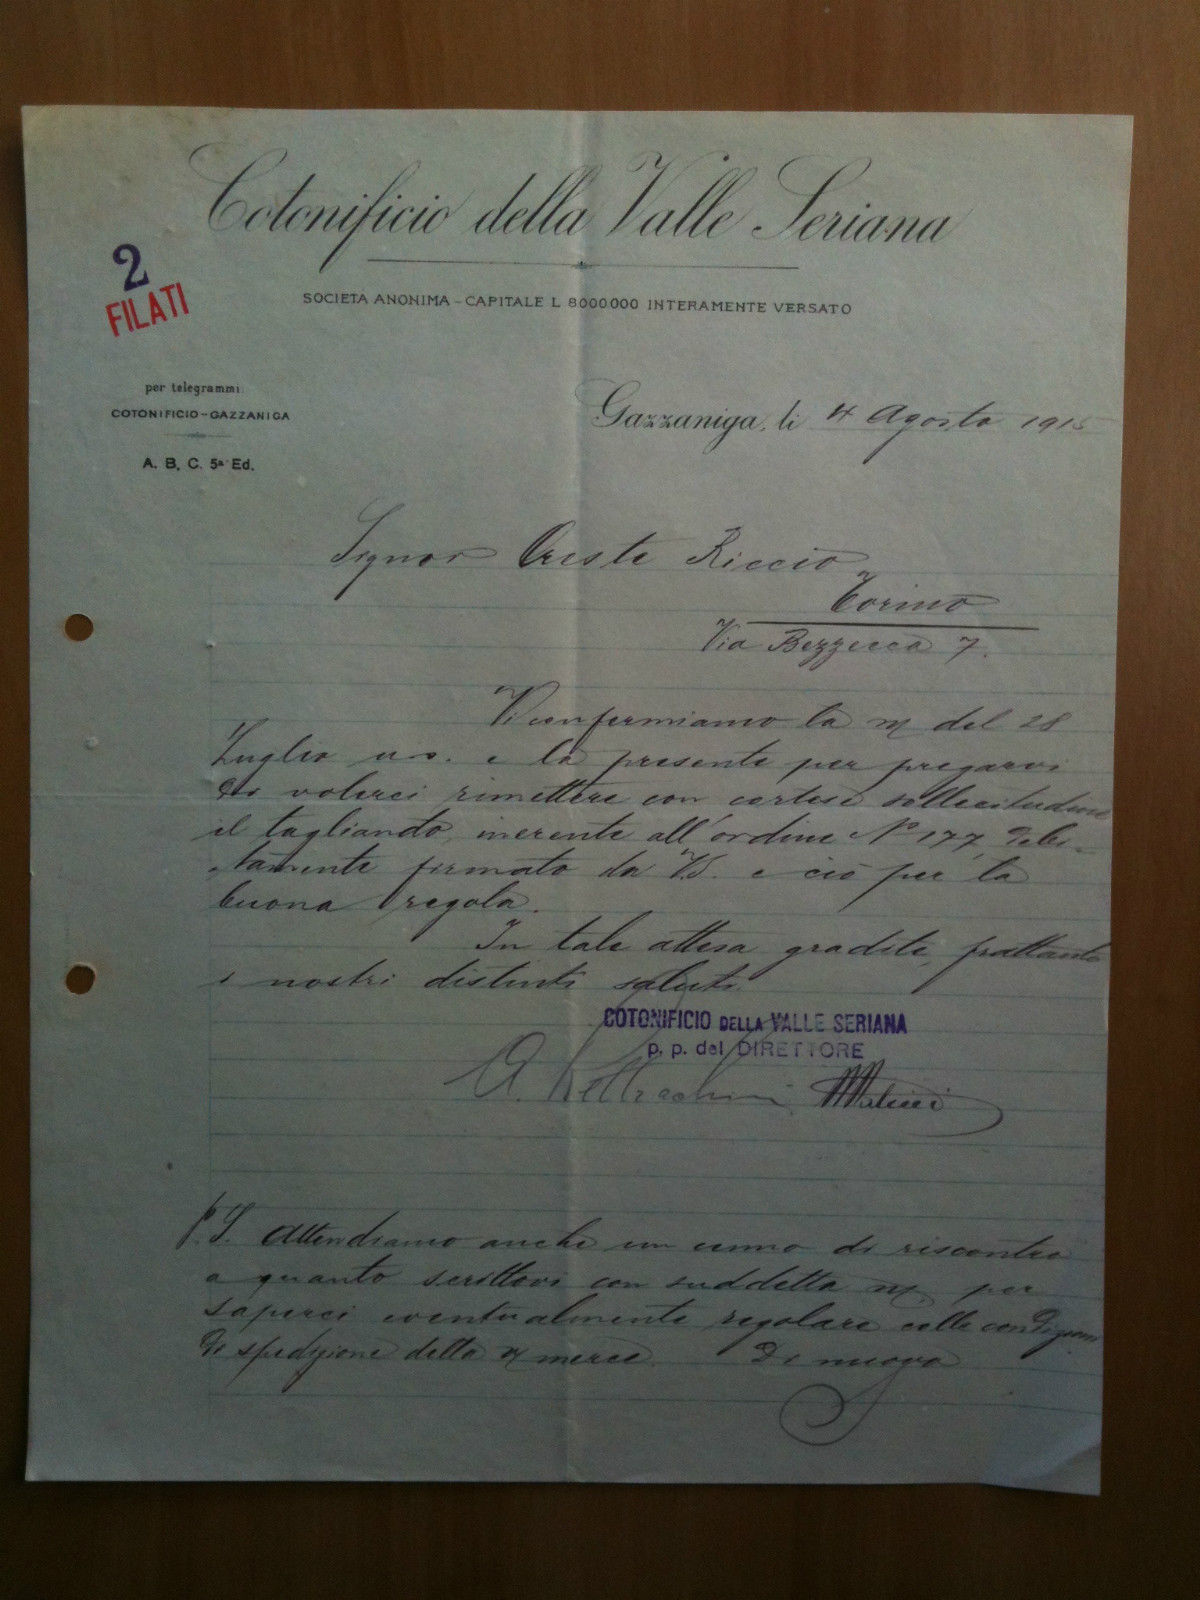 Cotonificio della Valle Seriana
SOCIETA ANONIMA - CAPITALE L 8000000 INTERAMENTE VERSATO
2
FILATI
per telegrammi:
COTONIFICIO-GAZZANIGA
A. B. C. 5ª Ed.
Gazzaniga, li 4 Agosto 1915
Signor Oreste Riccio
Torino
Via Bezzecca 7.
Vi confermiamo la n/ del 28
Luglio u.s. e la presente per pregarvi
di volerci rimettere con cortese sollecitudine
il tagliando, inerente all'ordine N° 177, debi-
tamente firmato da V.S. e ciò per la
buona regola.
In tale attesa gradite, frattanto
i nostri distinti saluti.
COTONIFICIO DELLA VALLE SERIANA
p. p. del DIRETTORE
P.S. Attendiamo anche un cenno di riscontro
a quanto scrittovi con suddetta n/ per
saperci eventualmente regolare nelle condizioni
di spedizione della n/ merce. Di nuovo